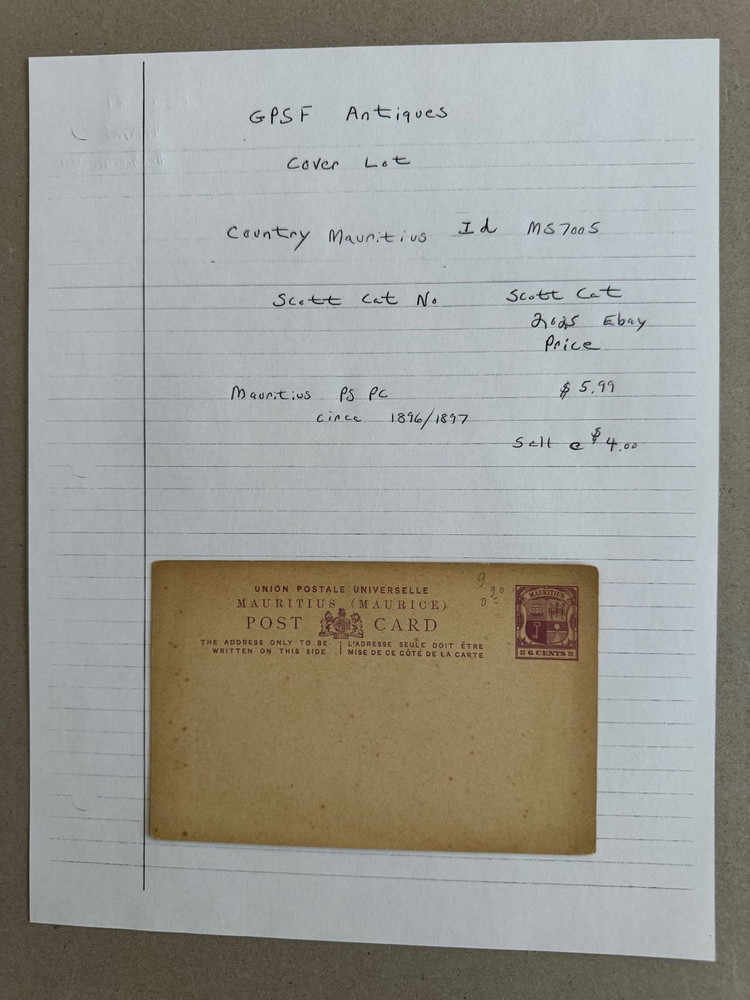 GPSF Antiques
Cover Lot
Country Mauritius Id MS7005
Scott Cat No Scott Cat
2025 Ebay
Price
Mauritius PS PC $ 5.99
circa 1896/1897
Sell @ $4.00
UNION POSTALE UNIVERSELLE
MAURITIUS (MAURICE)
POST CARD
THE ADDRESS ONLY TO BE
WRITTEN ON THIS SIDE
L'ADRESSE SEULE DOIT ÊTRE
MISE DE CE CÔTÉ DE LA CARTE
MAURITIUS
6 CENTS